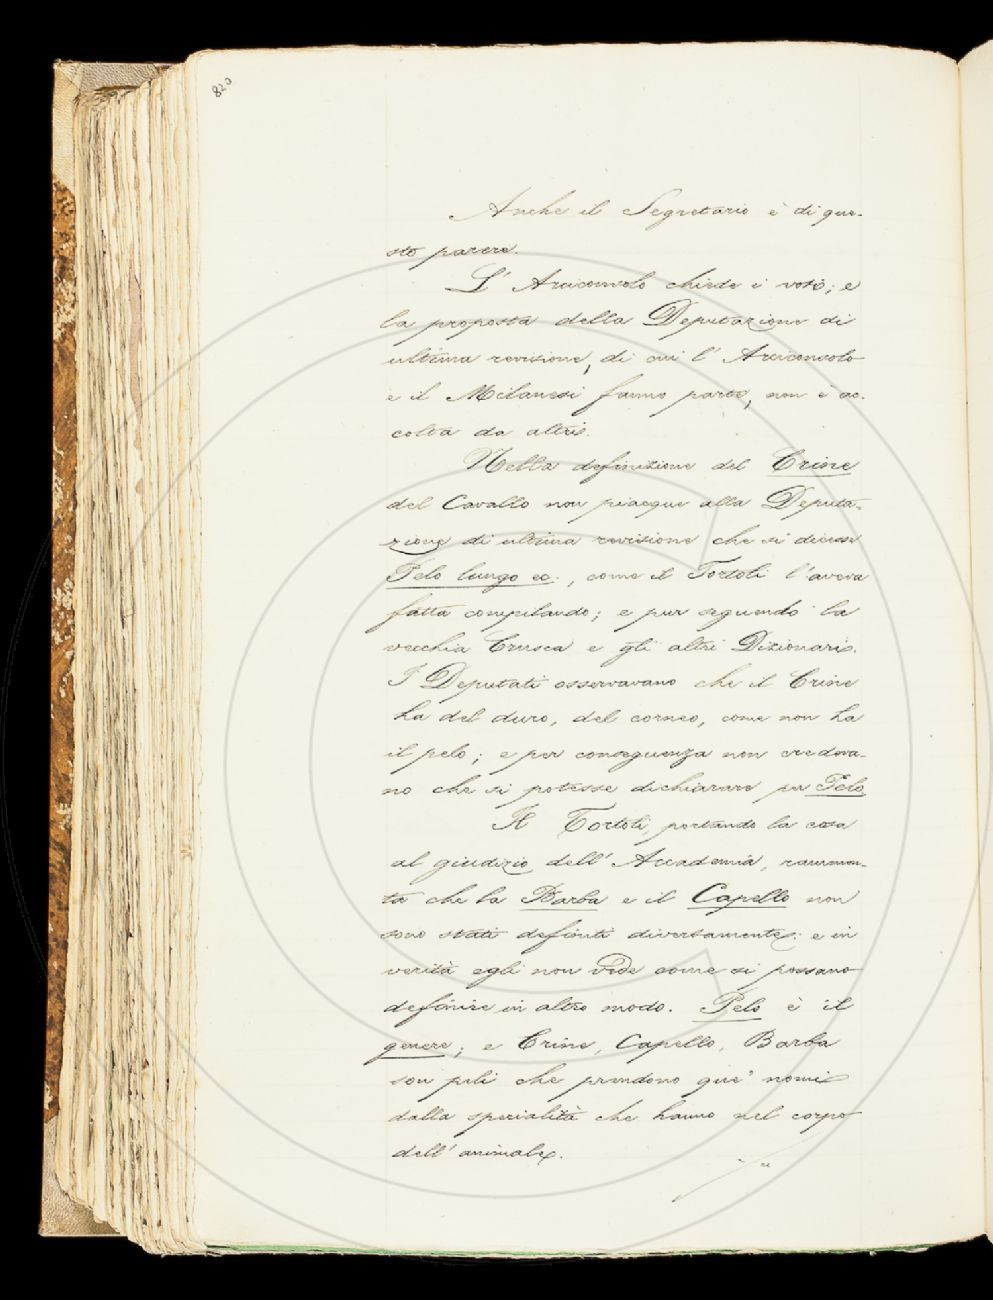 820
Anche il Segretario è di que-
sto parere.
L' Arciconsolo chiede i voti; e
la proposta della Deputazione di
ultima revisione, di cui l' Arciconsolo
e il Milanesi fanno parte, non è ac-
colta da altri.
Nella definizione del Crine
del Cavallo non piacque alla Deputa-
zione di ultima revisione che si dicesse
Pelo lungo ec., come il Tortoli l'aveva
fatta compilando; e pur seguendo la
vecchia Crusca e gli altri Dizionari.
I Deputati osservavano che il Crine
ha del duro, del corneo, come non ha
il pelo; e per conseguenza non credeva-
no che si potesse dichiarare per Pelo
Il Tortoli, portando la cosa
al giudizio dell' Accademia, rammen-
ta che la Barba e il Capello non
sono stati definiti diversamente: e in
verità egli non vede come si possano
definire in altro modo. Pelo è il
genere; e Crine, Capello, Barba
son peli che prendono que' nomi
dalla specialità che hanno nel corpo
dell' animale.